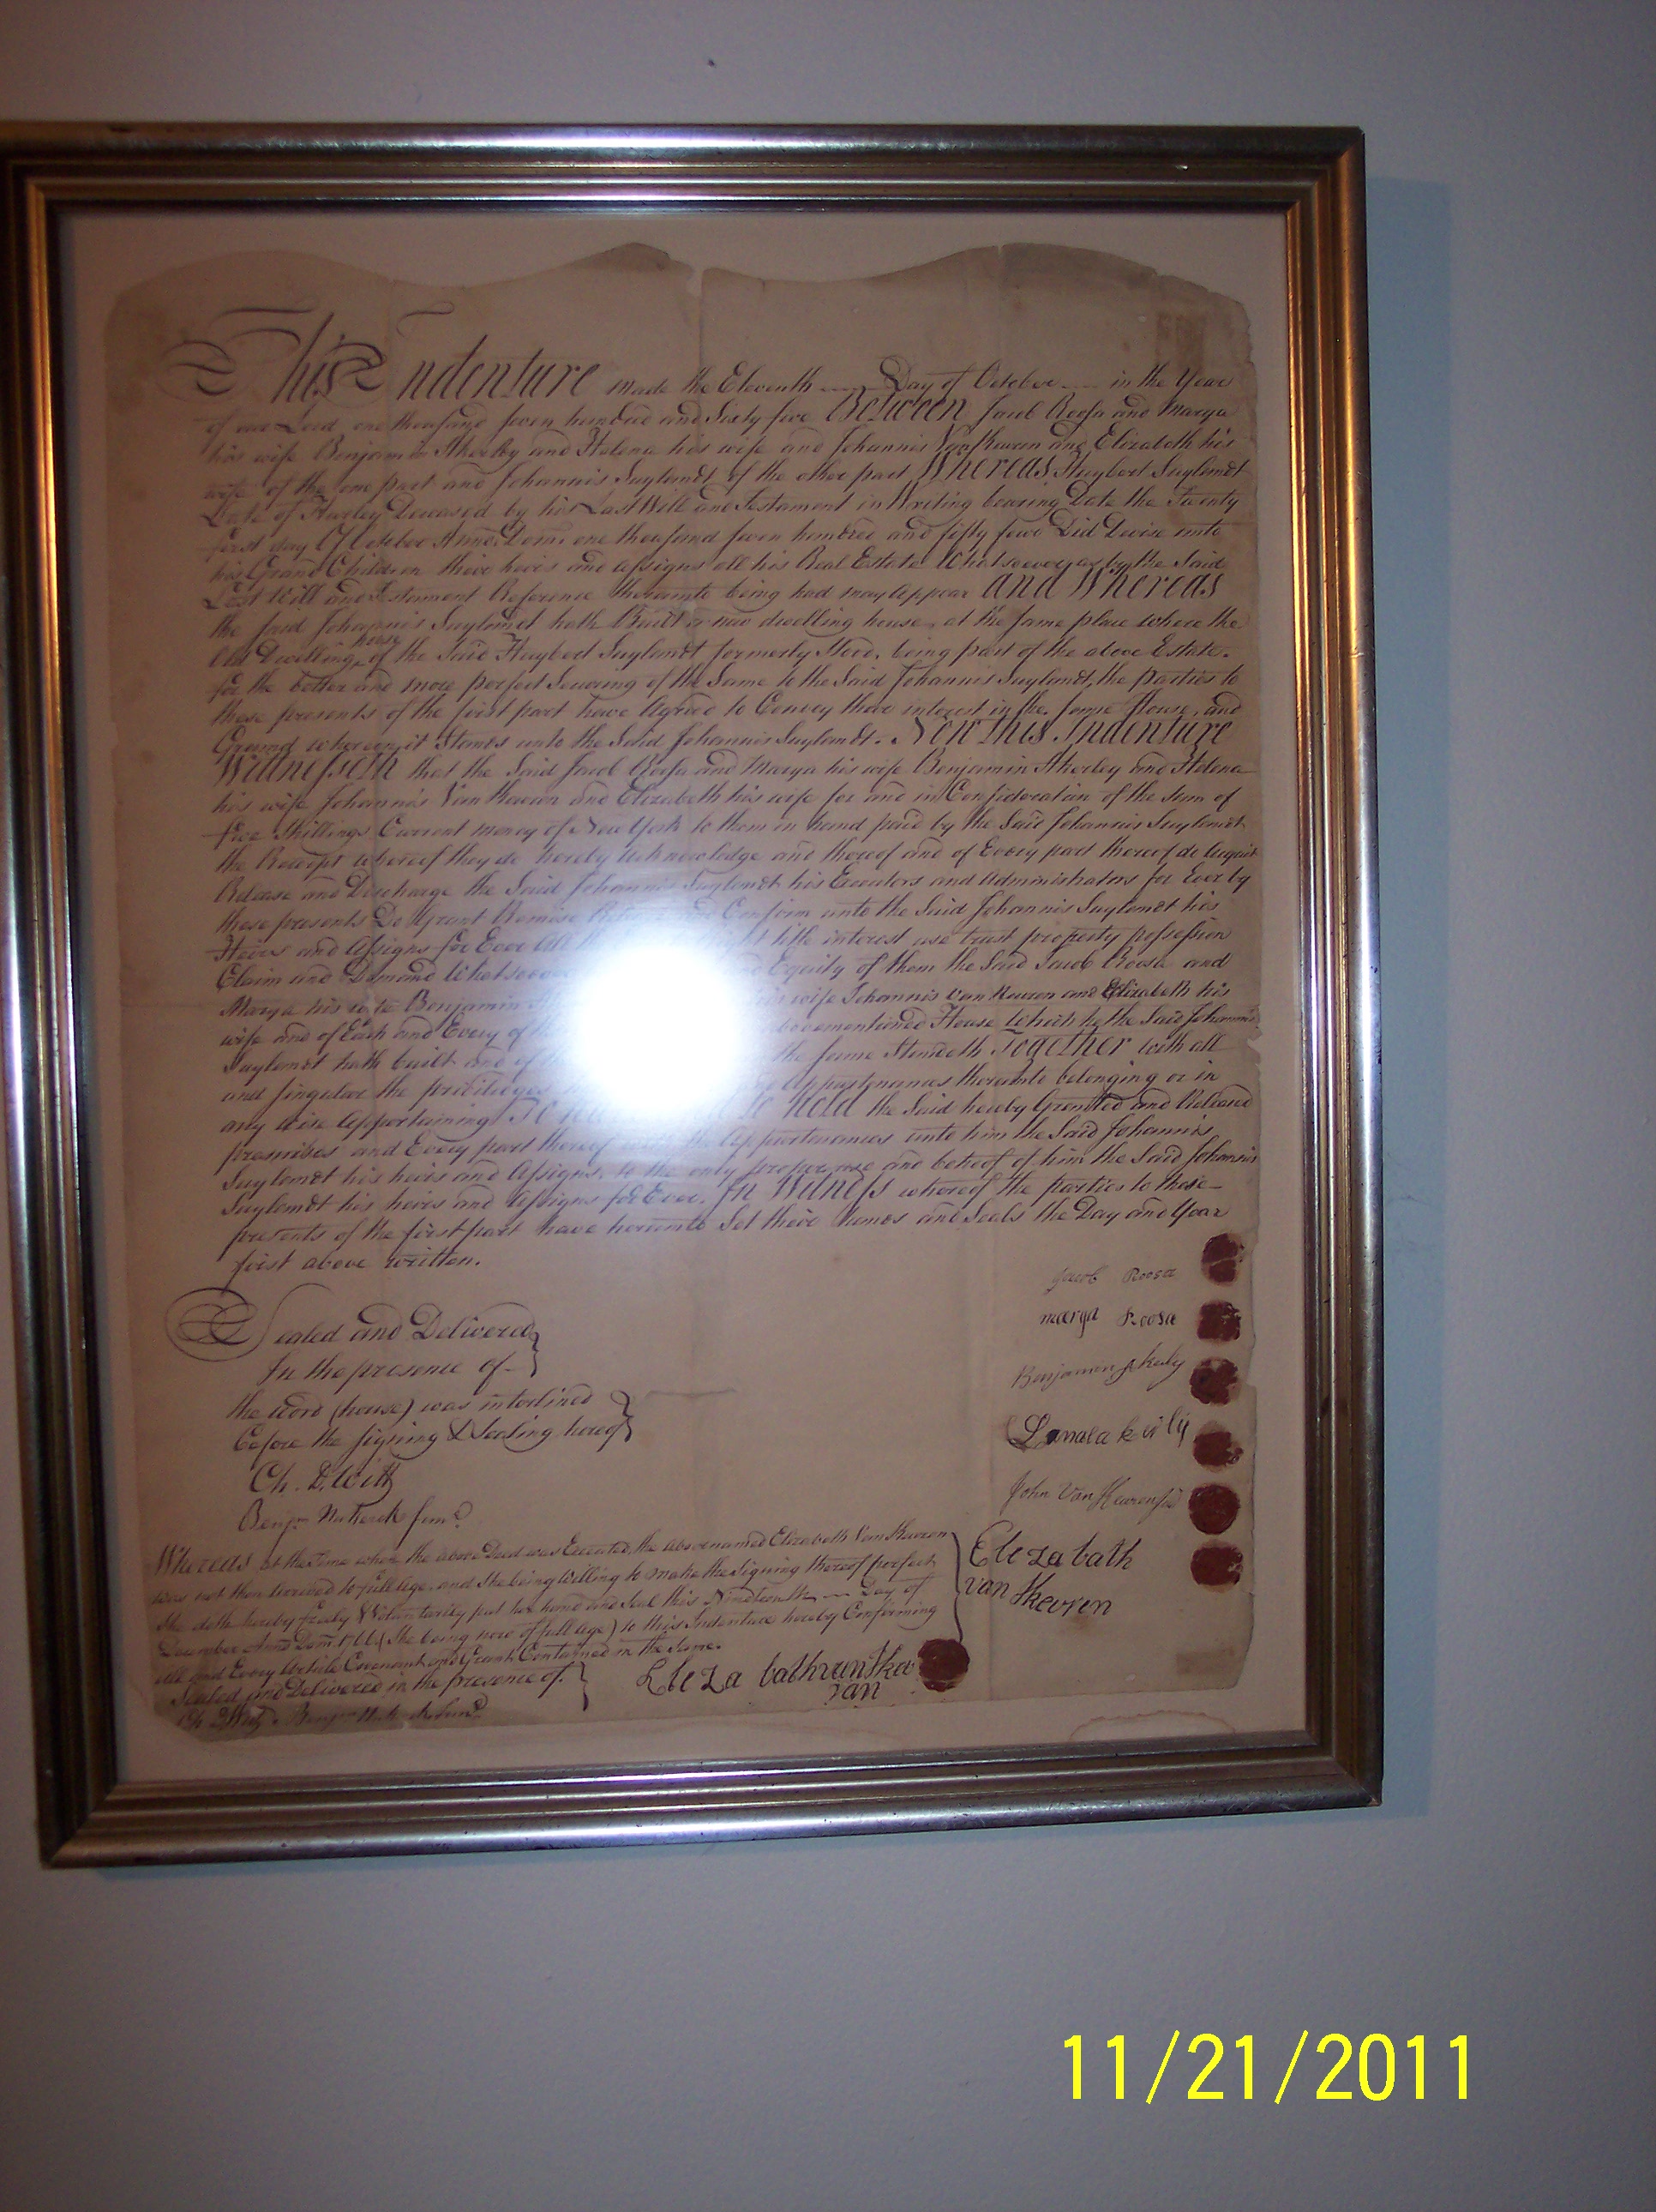 This Indenture made the Eleventh Day of October in the Year
of our Lord one thousand seven hundred and Sixty five Between Jacob Roosa and Marya
his wife Benjamin Akerley and Helena his wife and Johannis Van Keuren and Elizabeth his
wife of the one part and Johannis Suylandt of the other part Whereas Huybert Suylandt
Late of Hurley Deceased by his Last Will and Testament in Writing bearing Date the Twenty
first day Of October Anno Dom: one thousand seven hundred and fifty four Did Devise unto
his Grand Children their heirs and assigns all his Real Estate Whatsoever as by the Said
Last Will and Testament Reference thereunto being had may appear and Whereas
the said Johannis Suylandt hath Built a new dwelling house at the same place where the
Old Dwelling house of the Said Huybert Suylandt formerly Stood, being part of the above Estate.
for the better and more perfect Securing of the Same to the Said Johannis Suylandt, the parties to
these presents of the first part have Agreed to Convey their interest in the same House, and
Ground whereon it Stands unto the Said Johannis Suylandt. Now this Indenture
Witnesseth that the Said Jacob Roosa and Marya his wife Benjamin Akerley and Helena
his wife Johannis Van Keuren and Elizabeth his wife for and in Consideration of the Sum of
five Shillings Current money of New York to them in hand paid by the Said Johannis Suylandt
the Receipt whereof they do hereby Acknowledge and thereof and of Every part thereof do Acquit
Release and Discharge the Said Johannis Suylandt his Executors and Administrators for Ever by
these presents Do Grant Remise and Confirm unto the Said Johannis Suylandt his
Heirs and Assigns for Ever All title interest use trust property possession
Claim and Demand Whatsoever Equity of them the Said Jacob Roosa and
Marya his wife Benjamin wife Johannis Van Keuren and Elizabeth his
wife and of Each and Every of abovementioned House Which he the Said Johannis
Suylandt hath built and of the same Standeth Together with all
and singular the priviledges Appurtenances thereunto belonging or in
any wise Appertaining To hold the Said hereby Granted and Released
premises and Every part thereof the Appurtenances unto him the Said Johannis
Suylandt his heirs and Assigns, to the only proper use and behoof of him the Said Johannis
Suylandt his heirs and Assigns for Ever. In Witness whereof the parties to these
presents of the first part have hereunto Set their hands and Seals the Day and Year
first above written.
Jacob Roosa
marya Roosa
Sealed and Delivered
In the presence of
Benjamin Akerly
the word (house) was interlined
before the signing & Sealing hereof
Ch. D. Witt
John Van Keuren
Whereas at the Time when the above Deed was Executed, the abovenamed Elizabeth Van Keuren
was not then arrived to full age, and She being Willing to make the Signing thereof perfect
She doth hereby freely & Voluntarily put her hand and Seal this Nineteenth Day of
December Anno Dom: 1766 (She being now of full age) to this Indenture hereby Confirming
all and Every Article Covenant and Grant Contained in the Same.
Sealed and Delivered in the presence of
Elezabath
van Keuren
Elezabath van Keu
van
11/21/2011